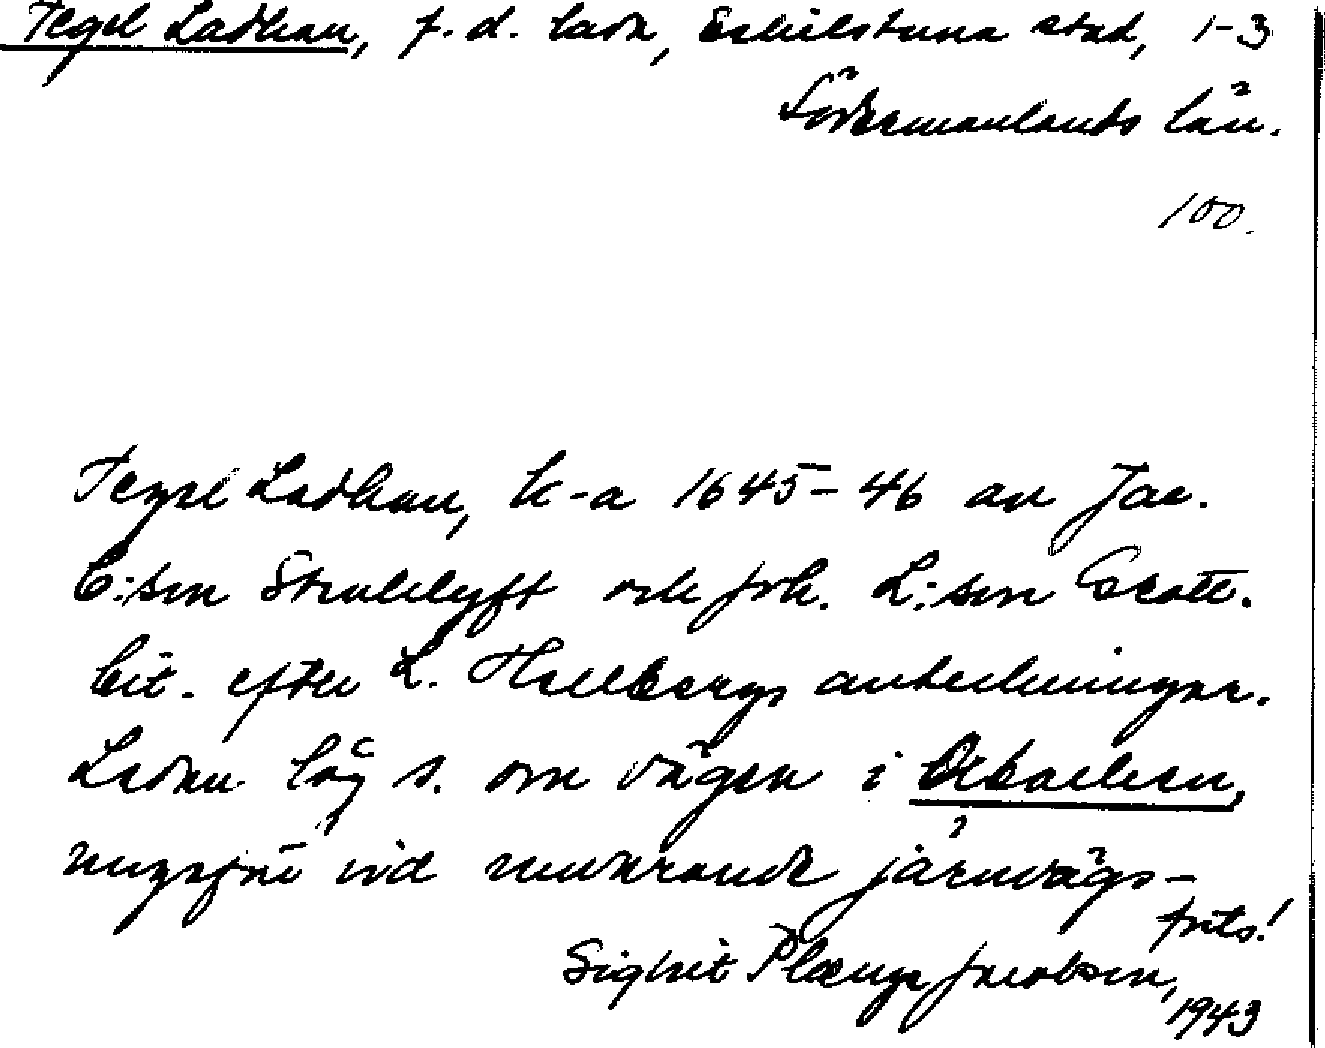 Tegel Ladhan, f.d. lada, Eskilstuna stad, 1-3
Södermanlands län.
100.
Tegel Ladhan, k-a 1645-46 av Jac.
C:son Struhlyft och joh. L:son Grott.
Cit. efter L. Hellbergs anteckningar.
Ladan låg s. om vägen i Årbacken,
ungefär vid nuvarande järnvägs-
forts!
Sigbrit Plænge Jacobson,
1943